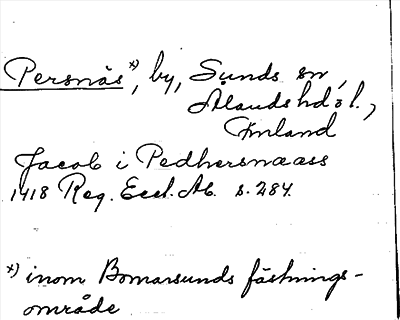 Persnäs x), by, Sunds sn,
Ålands hd o l.,
Finland
Jacob i Pedhersnæss
1418 Reg. Eccl. Ab. s. 284.
x) inom Bomarsunds fästnings-
område